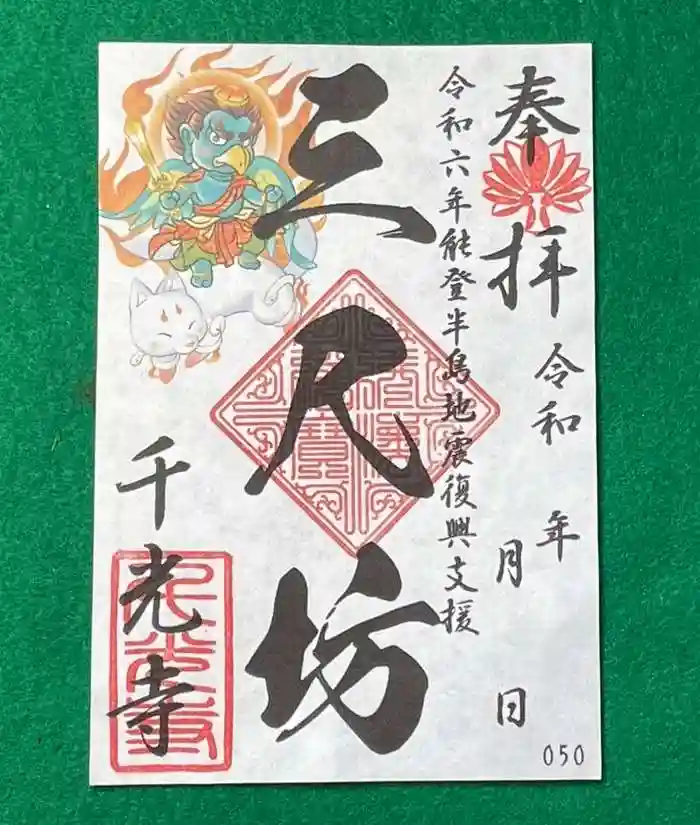 奉拝
令和 年 月 日
令和六年能登半島地震復興支援
三尺坊
千光寺
050